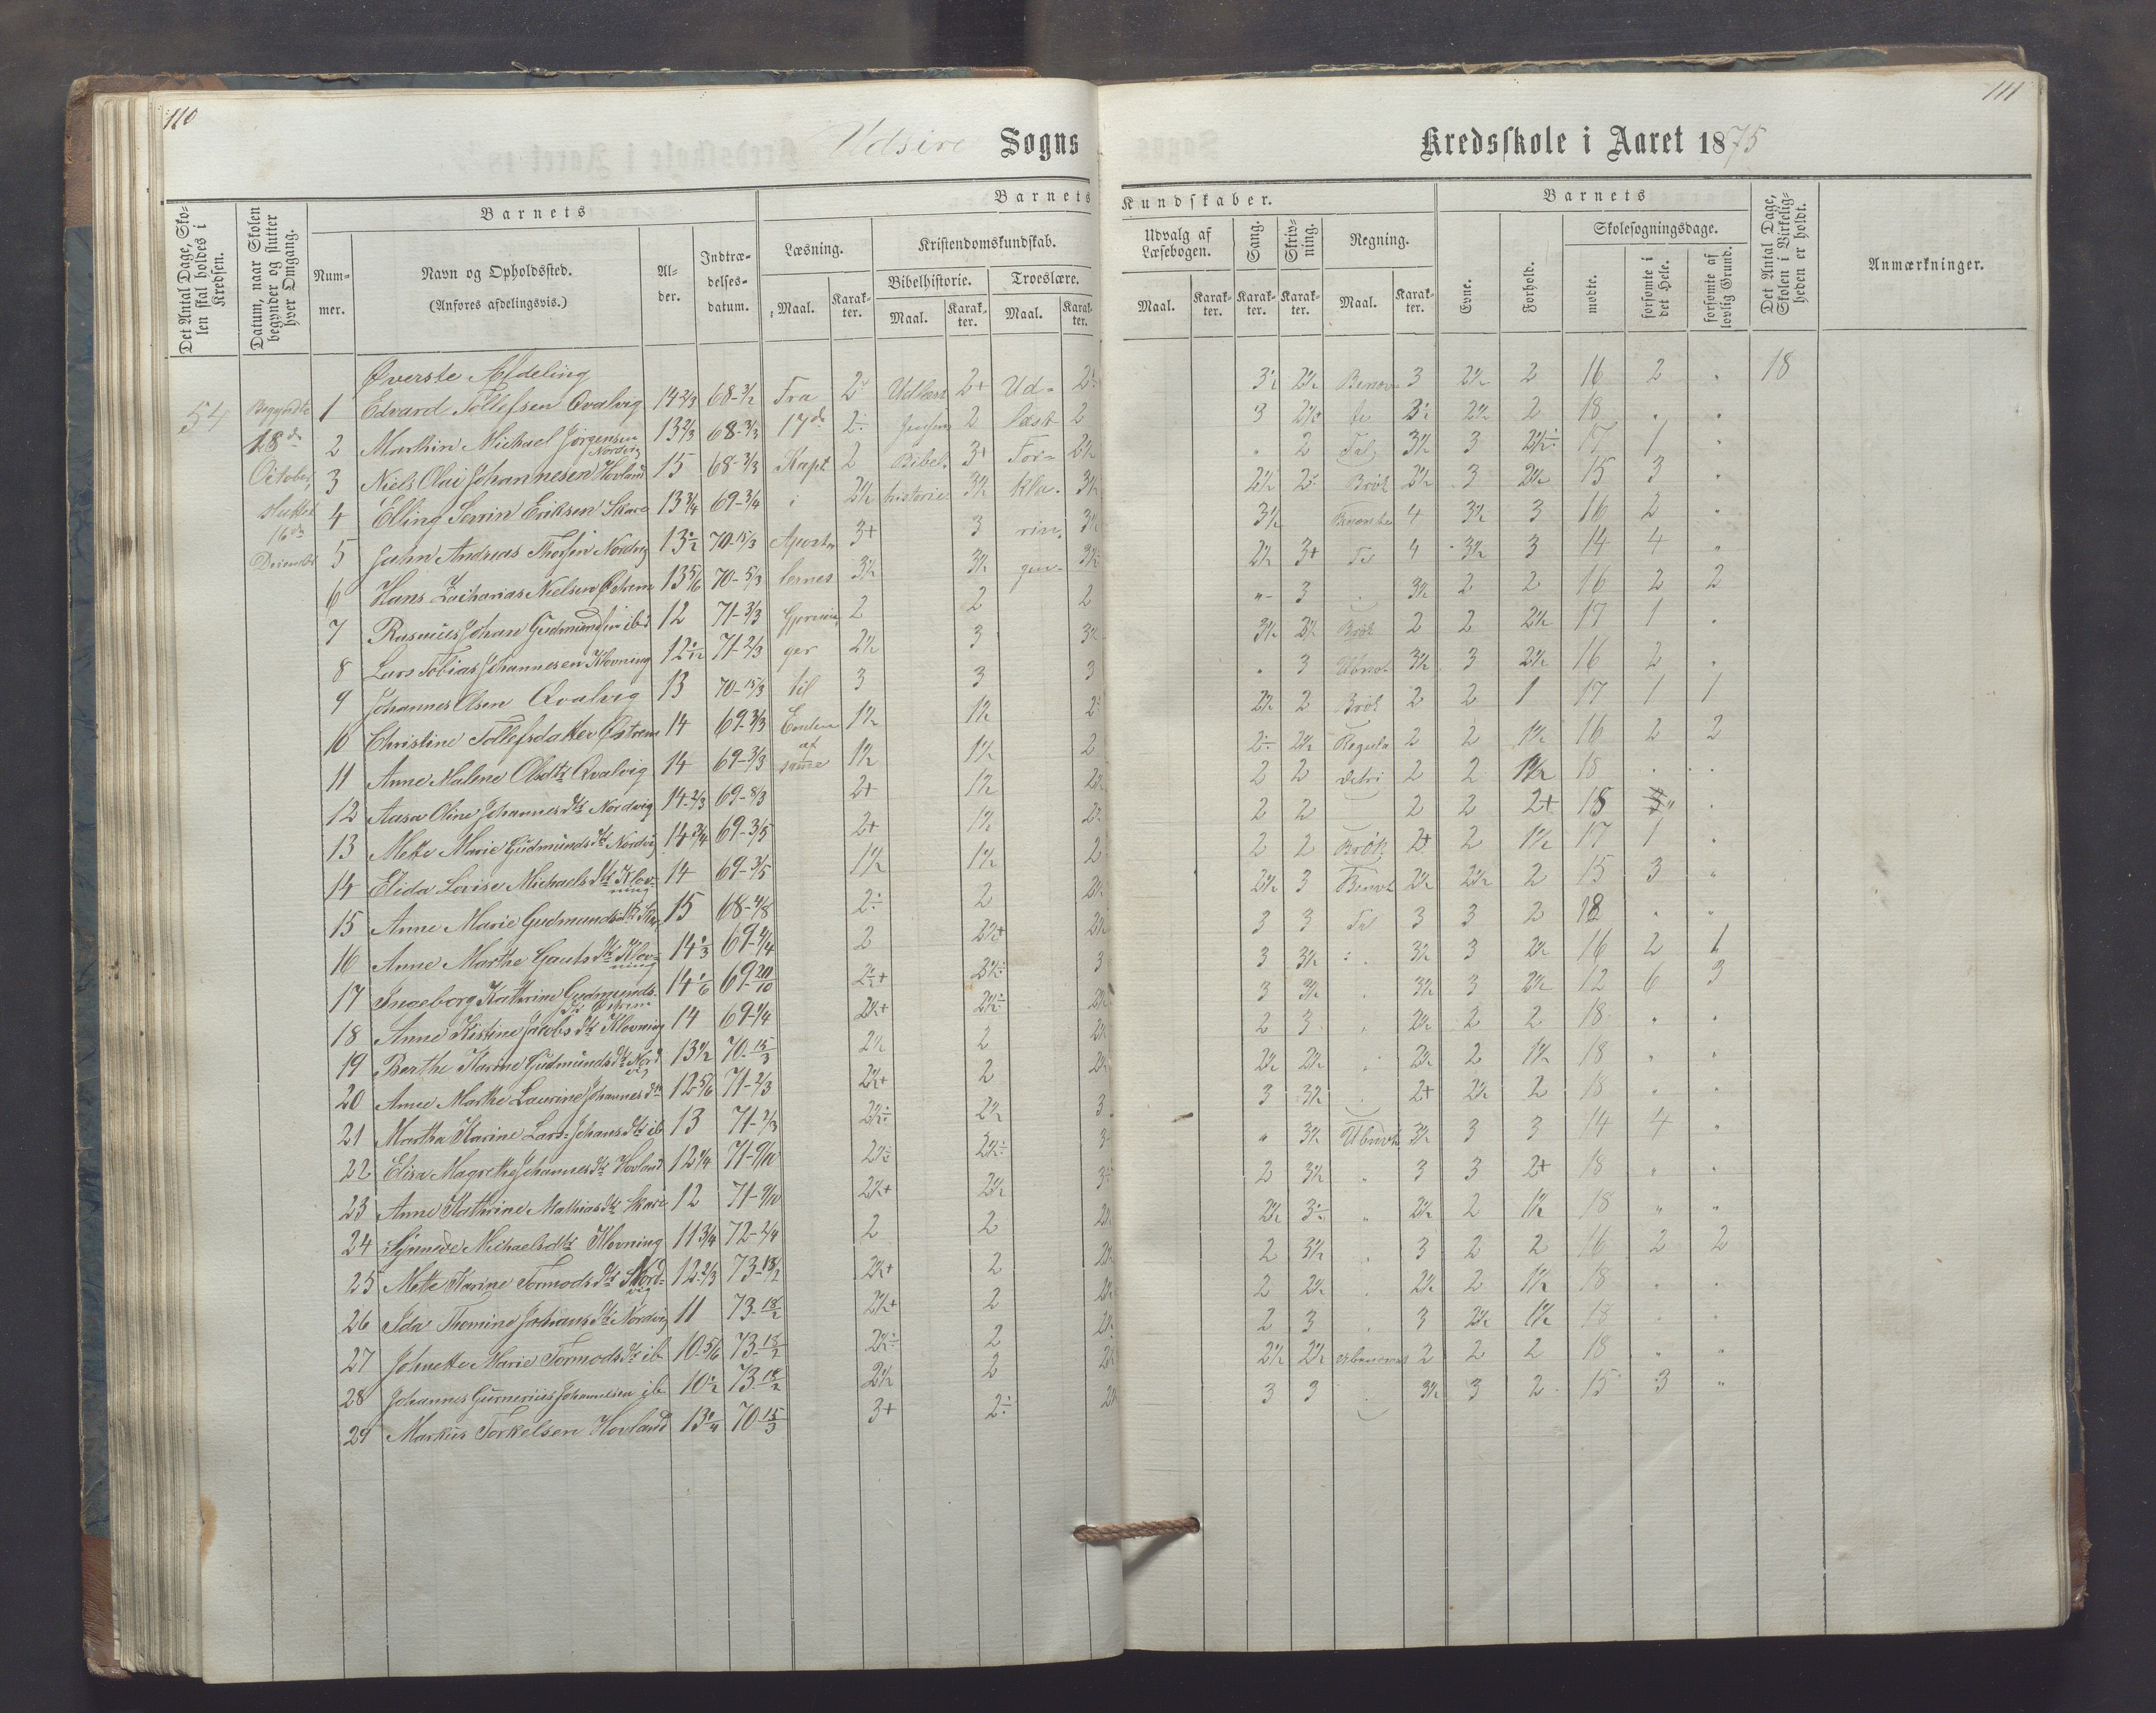 110
Udsire Sogns
Det Antal Dage, Skolen skal holdes i Kredsen.
Datum, naar Skolen begynder og slutter hver Omgang.
Barnets
Nummer.
Navn og Opholdssted.
(Anføres afdelingsvis.)
Alder.
Indtrædelsesdatum.
Barnets
Læsning.
Kristendomskundskab.
Bibelhistorie.
Troeslære.
Maal. Karakter. Maal. Karakter. Maal. Karakter.
Øverste Afdeling
54 Begyndte 1 Edvard Tollefsen Qvalvig 14 2/3 68-3/2 Fra 2 Udlæst 2+ Ud-
18de 2 Marthin Michael Jørgensen Nordvig 13 2/3 68-3/3 17de 2÷ 2 læst 2
October 3 Niels Olai Johannesen Hovland 15 68-3/3 Kapt 2 Bibel- 3+ For- 2½
sluttet 4 Elling Serrin Eriksen Skare 13¾ 69-3/4 i 2½ historie 3½ kla- 3½
16de December 5 John Andreas Thorsen Nordvig 13½ 70-15/3 Apost 3+ 3 rin- 3½
6 Hans Zacharias Nielsen Østrem 13 5/6 70-5/3 lernes 3½ 3½ gen-
7 Rasmus Johan Gudmundsen ibd 12 71-3/3 Gjernin 2 2 2
8 Lars Tobias Johannesen Klovning 12 1/12 71-2/3 ger 2½ 3 3½
9 Johannes Olsen Qvalvig 13 70-15/3 til 3 3 3
10 Christine Tollefsdatter Østrem 14 69-3/3 Enden 1½ 1½
11 Anne Malene Olsdtr Qvalvig 14 69-3/3 af samme 1½ 1½ 2
12 Aasa Oline Johannesdtr Nordvig 14-2/3 69-8/3 2+ 1½
13 Mette Marie Gudmundsdtr Nordvig 14¾ 69-3/5 2+ 1½
14 Elida Lovise Michaelsdtr Klovning 14 69-3/5 1½ 1½ 2
15 Anne Marie Gudmundsdtr 15 68-4/8 2÷ 2
16 Anne Marthe Gautsdtr Klovning 14 1/3 69-4/4 2 2½+
17 Ingeborg Kathrine Gudmundsdtr Østrem 14 1/6 69-20/10 2½+ 2½÷ 3
18 Anne Kistine Jacobsdtr Klovning 14 69-4/4 2½+ 2½÷
19 Berthe Karine Gudmundsdtr Nordvig 13½ 70-15/3 2½ 2
20 Anne Marthe Laurine Johannesdtr 12-5/6 71-2/3 2½+ 2
21 Martha Karine Lars-Johansdtr ib 13 71-2/3 2½÷ 2½ 3
22 Elisa Magrethe Johannesdtr Hovland 12¼ 71-9/10 2½÷ 2½÷ 3
23 Anne Kathrine Mathiasdtr Skare 12 71-9/10 2½+ 2½
24 Synneve Michaelsdtr Klovning 11¾ 72-2/4 2 2
25 Mette Karine Tormodsdtr Nordvig 12-2/3 73-18/2 2½+ 2
26 Ida Thomine Johansdtr Nordvig 11 73-18/2 2½+ 2
27 Johnette Marie Tormodsdtr ib 10-5/6 73-18/2 2½÷ 2
28 Johannes Gunnerius Johannesen ib 10½ 73-18/2 2½ 2
29 Markus Torkelsen Hovland 13¼ 70-15/3 3+ 2÷
111
Kredsskole i Aaret 1875
Kundskaber.
Udvalg af Læsebogen.
Sang.
Skrivning.
Regning.
Maal. Karakter. Karakter. Karakter. Maal. Karakter.
Barnets
Evne.
Forhold.
Skolesøgningsdage.
mødte.
forsømte i det Hele.
forsømte af lovlig Grund.
Det Antal Dage, Skolen i Virkeligheden er holdt.
Anmærkninger.
3½ 2½ Benævn 3 2½ 2 16 2 „ 18
3 2½+ te 3½ 2½ 2 18 „ „
„ 2 Tal 3½ 3 2½÷ 17 1 „
2½ 2÷ Brøk 2½ 3 2½ 15 3 „
3½ Benævnte 4 3½ 3 16 2 „
2½ 3+ Tal 4 3½ 3 14 4 „
„ 3 „ 3½ 2 2 16 2 2
3½ 2½ Brøk 2 2 2½ 17 1 „
„ 3 Ubnvt 3½ 3 2½ 16 2 „
2½ 2 Brøk 2 2 1 17 1 1
2÷ 2½ Regula 2 2 1½ 16 2 2
2 2 detri 2 2 1½ 18 „ „
2 2 2 2 2+ 18 „ „
2 2 Brøk 2+ 2 1½ 17 1 „
2½ 3 Benvt 2½ 2½ 2 15 3 „
3 3 Tal 3 3 2 18 „ „
3 3½ „ 3½ 3 2½ 16 2 1
3 3½ „ 3½ 3 2½ 12 6 3
2 3 „ 2½ 2 2 18 „ „
2½ 2½ „ 2½ 2 1½ 18 „ „
3 3½ „ 2+ 2½ 2 18 „ „
„ 3½ Ubnvt 3½ 3 3 14 4 „
2 3½ „ 3 3 2+ 18 „ „
2½ 3÷ „ 2½ 2 1½ 18 „ „
2 3½ „ 3 2 2 16 2 2
2 2½ „ 2½ 2 1½ 18 „ „
2 3 „ 3 2½ 1½ 18 „ „
2½ 2½ 2 2 2 18 „ „
3 3 „ 3½ 3 2 15 3 „